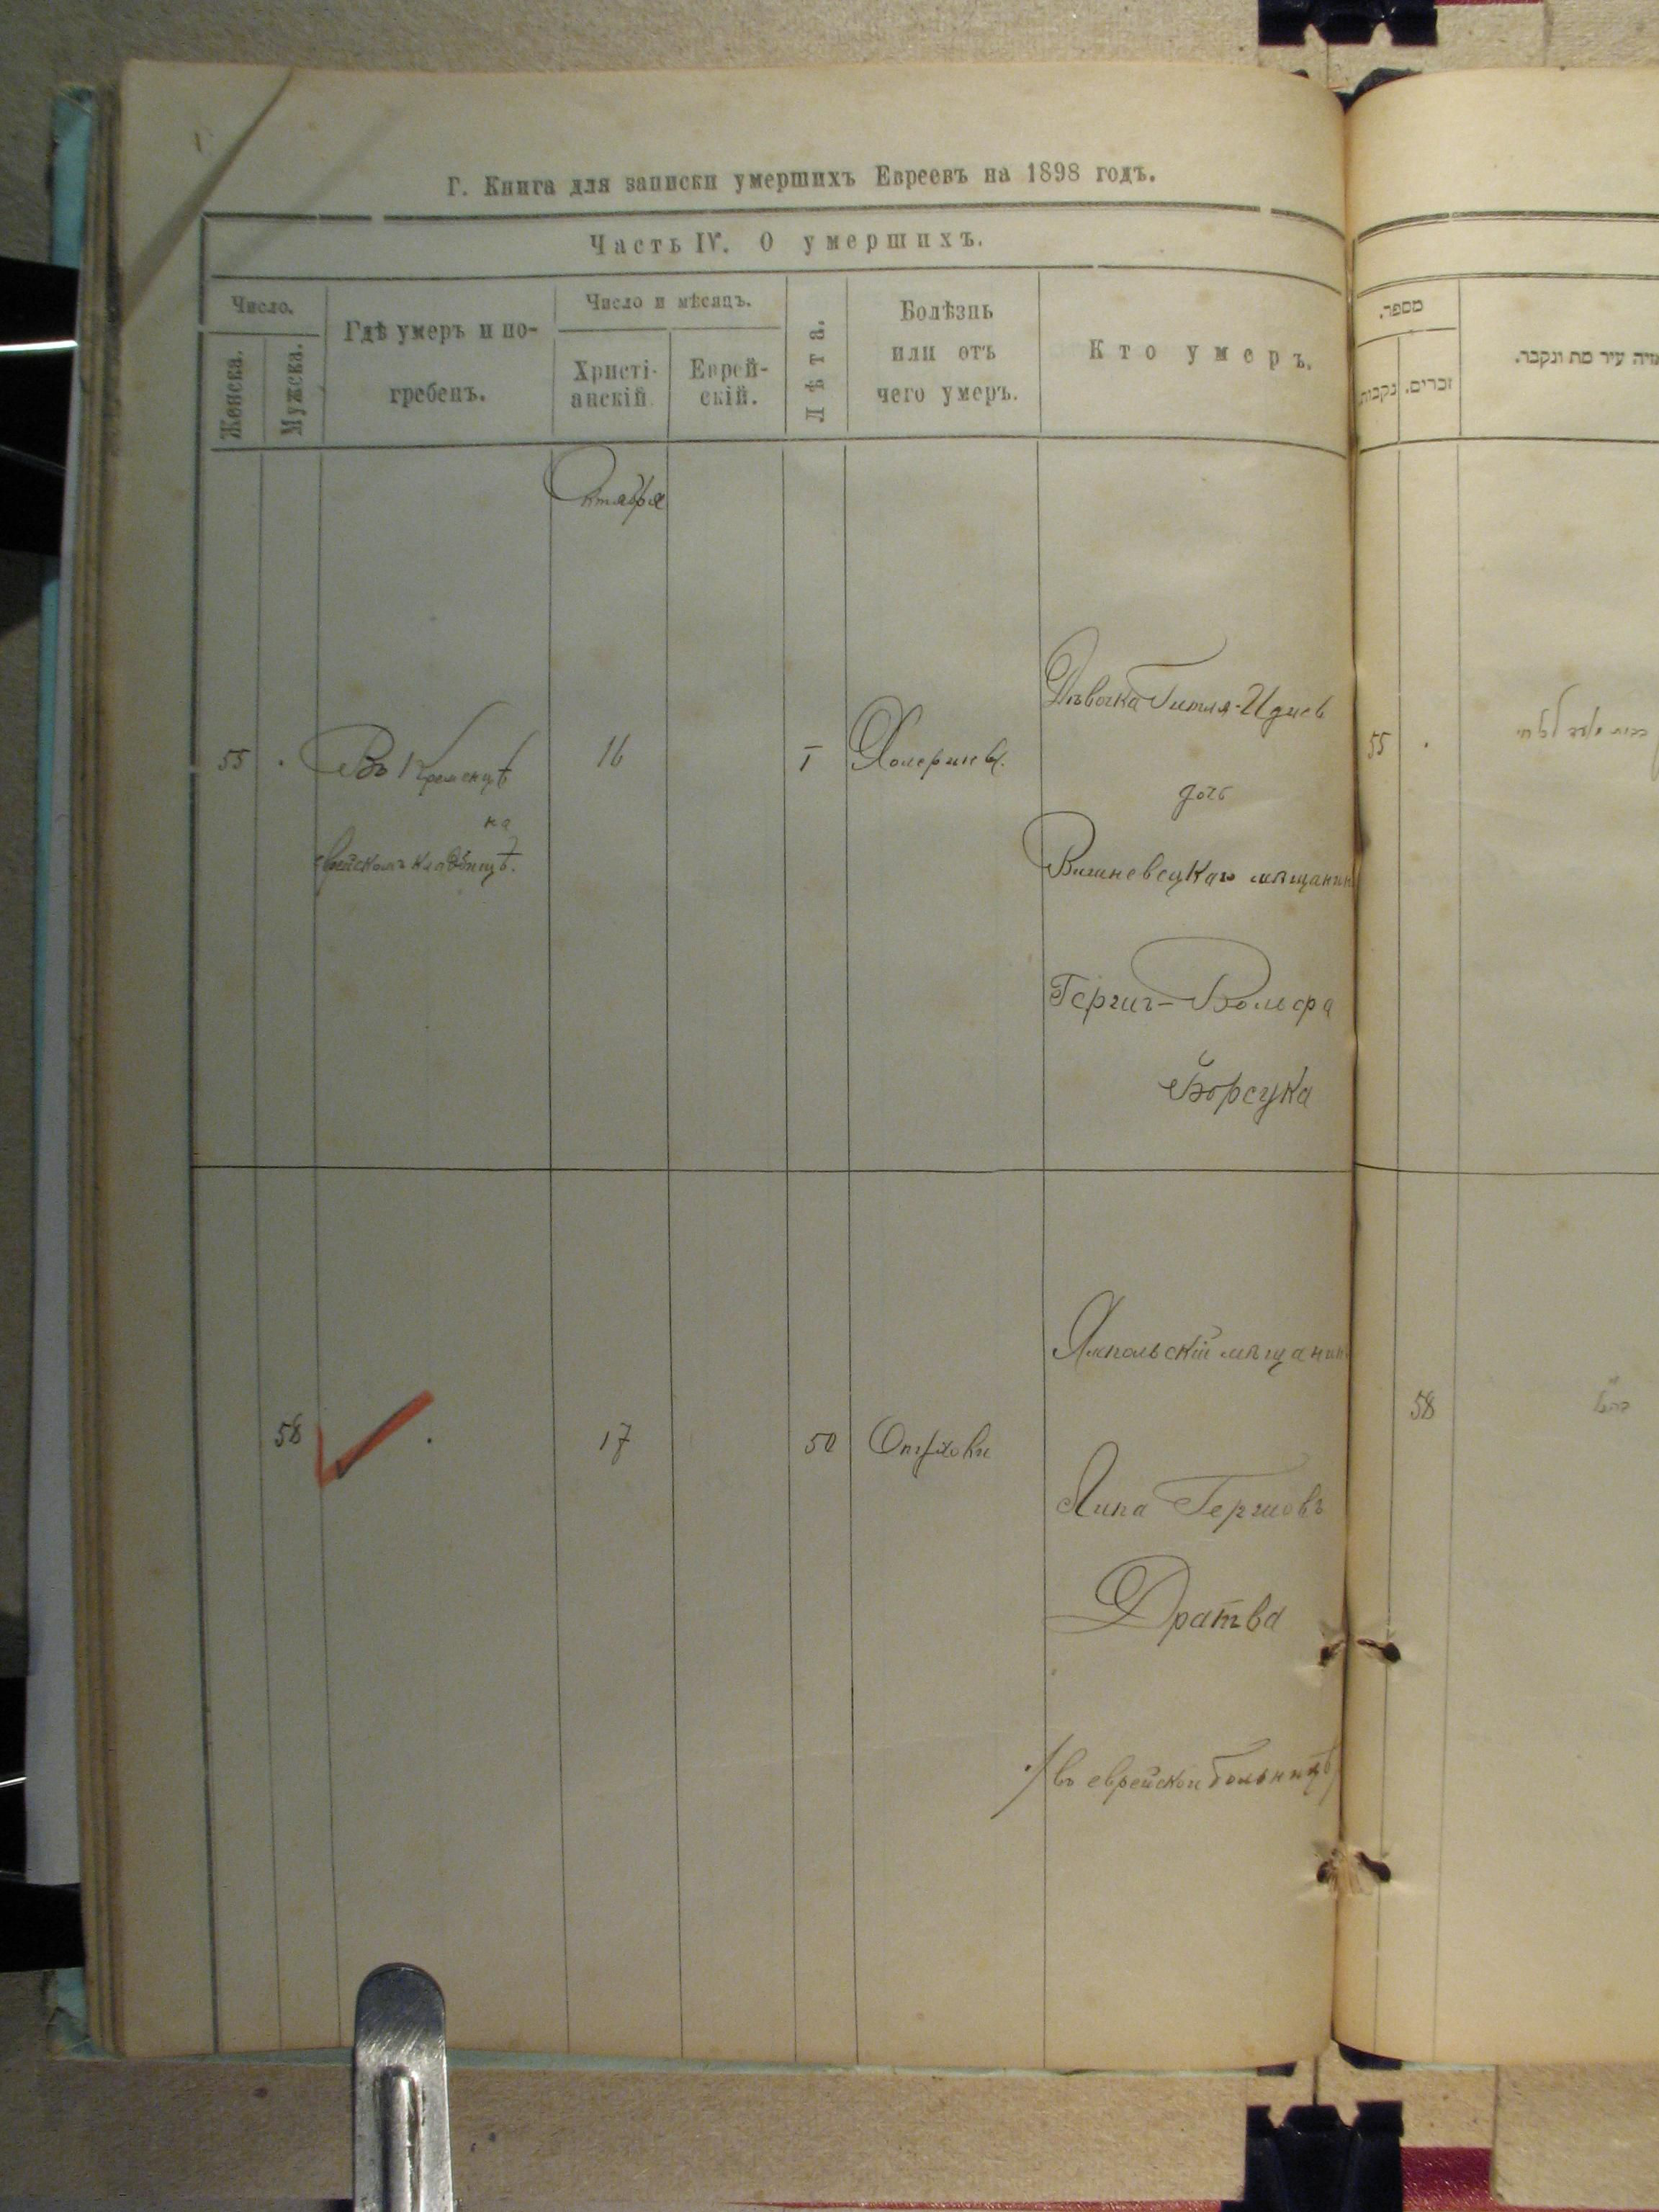 Г. Книга для записки умершихъ Евреевъ на 1898 годъ.
Часть IV. О умершихъ.
Число.
Женска.
Мужска.
Гдѣ умеръ и по-
гребенъ.
Число и мѣсяцъ.
Христі-
анскій.
Еврей-
скій.
Лѣта.
Болѣзнь
или отъ
чего умеръ.
Кто умеръ.
מספר.
נקבות.
זכרים.
עיר מת ונקבר.
Октября
55
Въ Кременцѣ
на
еврейскомъ кладбищѣ.
16
1
Дѣвочка Гитля-
дочь
Вишневецкаго мѣщанина
Гершъ-Вольфа
Борсука
55
58
17
50
Ямпольскій мѣщанин
Липа Гершовъ
Дратва
/въ еврейской больницѣ/
58